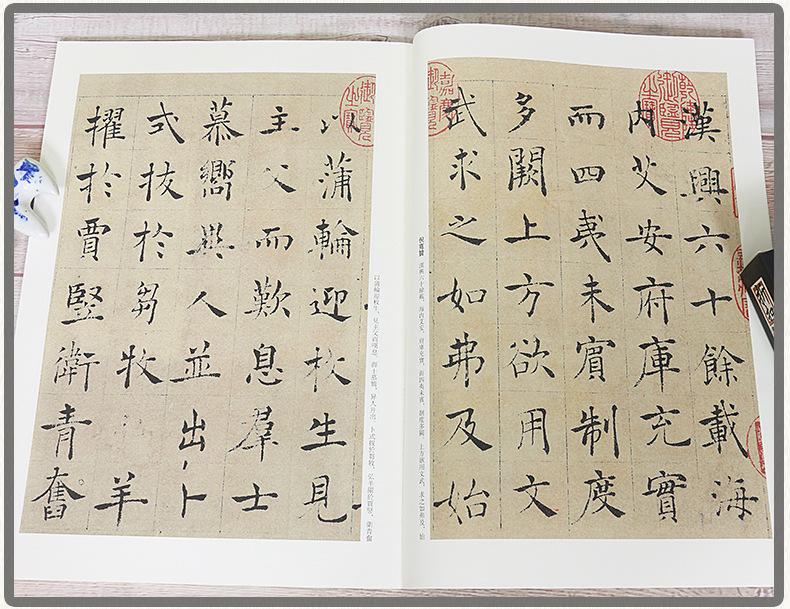 漢興六十餘載海
內艾安府庫充實
而四夷未賓制度
多闕上方欲用文
武求之如弗及始
倪寬贊 漢興六十餘載，海內艾安，府庫充實，而四夷未賓，制度多闕，上方欲用文武，求之如弗及，始
以蒲輪迎枚生見
主父而歎息羣士
慕嚮異人並出卜
式拔於芻牧羊
擢於賈竪衛青奮
以蒲輪迎枚生，見主父而嘆息。群士慕嚮，異人並出。卜式拔於芻牧，弘羊擢於賈竪，衛青奮
嘉慶御覽之寶